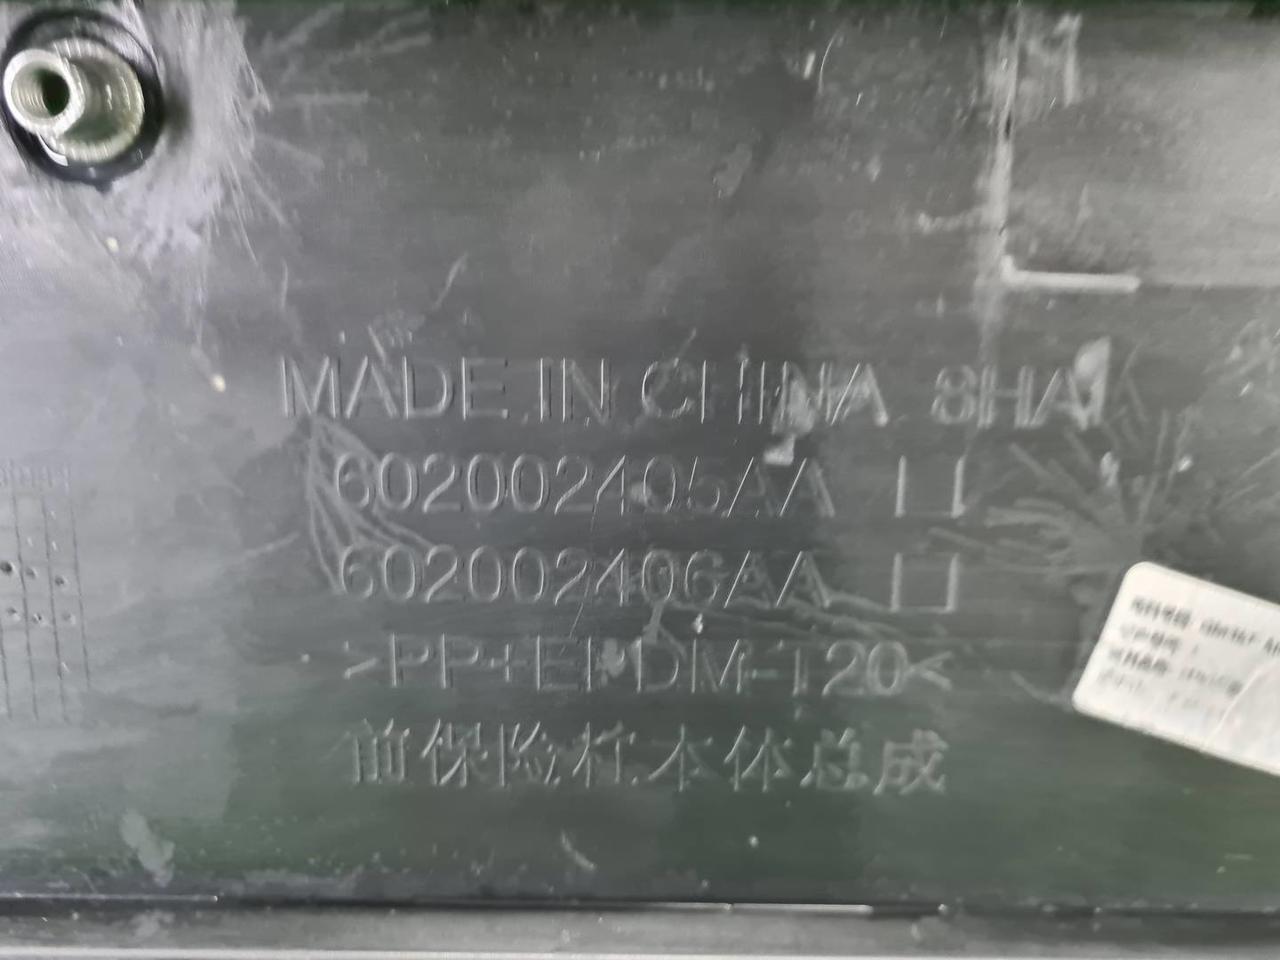 MADE IN CHINA 8HA
602002405AA □
602002406AA □
>PP+EPDM-T20<
前保险杠本体总成